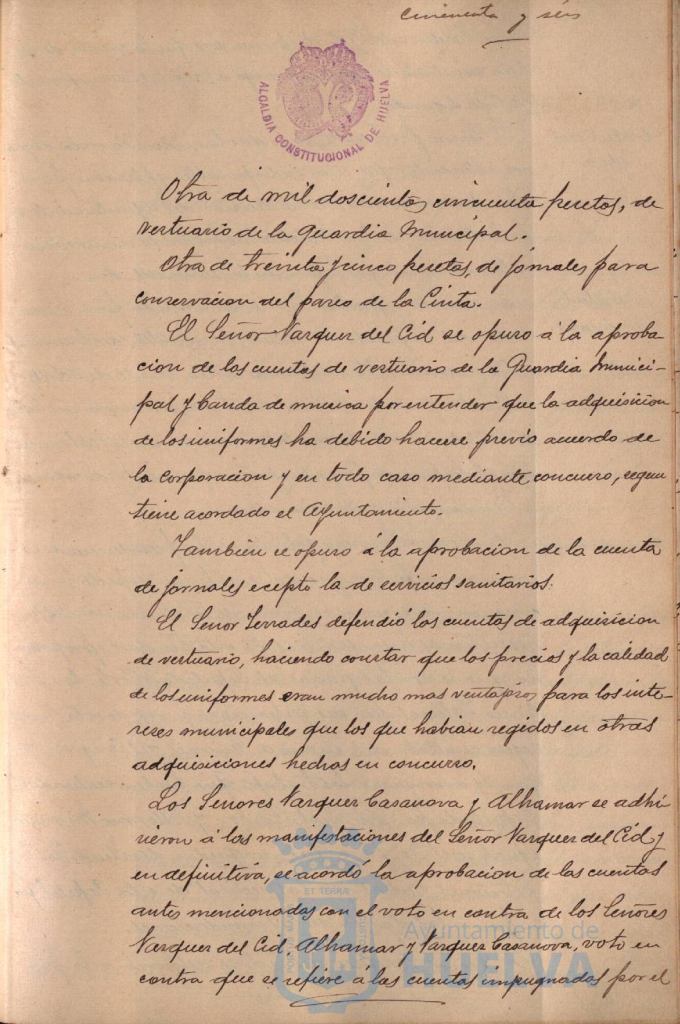 cincuenta y seis
ALCALDIA CONSTITUCIONAL DE HUELVA
Otra de mil doscientas cincuenta pesetas, de
vestuario de la Guardia Municipal.
Otra de treinta y cinco pesetas, de jornales para
conservacion del paseo de la Cinta.
El Señor Vazquez del Cid se opuso á la aproba
cion de las cuentas de vestuario de la Guardia Munici-
pal y banda de musica por entender que la adquisicion
de los uniformes ha debido hacerse previo acuerdo de
la corporacion y en todo caso mediante concurso, segun
tiene acordado el Ayuntamiento.
Tambien se opuso á la aprobacion de la cuenta
de jornales ecepto la de servicios sanitarios.
El Señor Terrades defendió las cuentas de adquisicion
de vestuario, haciendo constar que los precios y la calidad
de los uniformes eran mucho mas ventajosos para los inte-
reses municipales que los que habian regidos en otras
adquisiciones hechas en concurso.
Los Señores Vazquez Casanova y Alhamar se adhi
rieron á las manifestaciones del Señor Vazquez del Cid y
en definitiva, se acordó la aprobacion de las cuentas
antes mencionadas con el voto en contra de los Señores
Vazquez del Cid, Alhamar y Vazquez Casanova, voto en
contra que se refiere á las cuentas impugnadas por el
ET TERRÆ
Ayuntamiento de
HUELVA